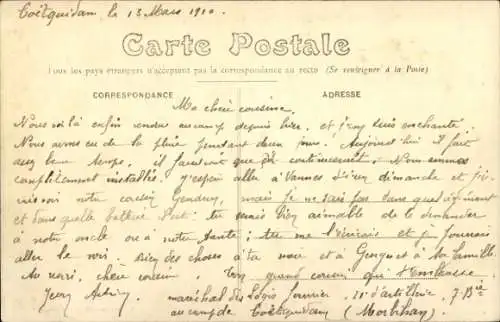 Coëtquidan le 13 Mars 1910.
Carte Postale
Tous les pays étrangers n'acceptent pas la correspondance au recto (Se renseigner à la Poste)
CORRESPONDANCE
ADRESSE
Ma chère cousine,
Nous voilà enfin rendu au camp depuis hier, et j'en suis enchanté.
Nous avons eu de la pluie pendant deux jours. Aujourd'hui il fait
assez beau temps, il faudrait que continuerait. Nous sommes
complètement installés. J'espère aller à Vannes d'ici dimanche et
voir notre cousin mais je ne sais pas dans quel régiment
et dans quelle batterie tu mais bien aimable de le demander
à notre oncle ou à notre tante; tu me l'écrirais et je pourrais
aller le voir. Bien des choses à ta mère et à Georges et à sa famille.
Au revoir, chère cousine Ton grand cousin qui t'embrasse.
maréchal des logis fourrier d'artillerie 7 Bie
au camp de Coëtquidan (Morbihan)